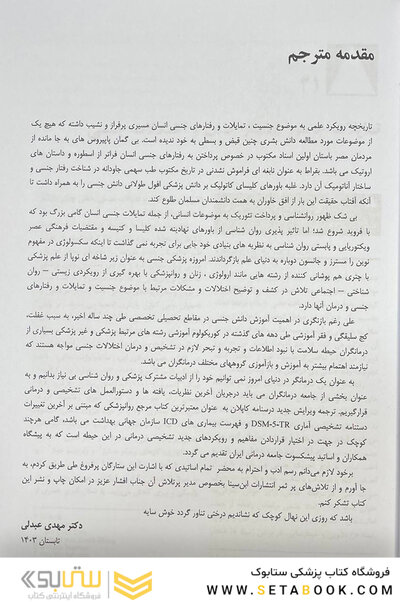 مقدمه مترجم
تاریخچه رویکرد علمی به موضوع جنسیت ، تمایلات و رفتارهای جنسی انسان مسیری پرفراز و نشیب داشته که هیچ یک
از موضوعات مورد مطالعه دانش بشری چنین قبض و بسطی به خود ندیده است. بی گمان پاپیروس های به جا مانده از
مردمان مصر باستان اولین اسناد مکتوب در خصوص پرداختن به رفتارهای جنسی انسان فراتر از اسطوره و داستان های
اروتیک می باشد. بقراط به عنوان نابغه ای فراموش نشدنی در تاریخ مکتوب طب سهمی جاودانه در شناخت رفتار جنسی و
ساختار آناتومیک آن دارد. غلبه باورهای کلیسای کاتولیک بر دانش پزشکی افول طولانی دانش جنسی را به همراه داشت تا
آنکه آفتاب حقیقت این بار از افق خاوران به همت دانشمندان مسلمان طلوع کند.
بی شک ظهور روانشناسی و پرداخت تئوریک به موضوعات انسانی، از جمله تمایلات جنسی انسان گامی بزرگ بود که
با فروید شروع شد؛ اما تاثیر پذیری روان شناسی از باورهای نهادینه شده کلیسا و کنیسه و مقتضیات فرهنگی عصر
ویکتوریایی و پایستی روان شناسی به نظریه های بنیادی خود جایی برای تجربه نمی گذاشت تا اینکه سکسولوژی در مفهوم
نوین را مسترز و جانسون دوباره به دنیای علم بازگرداندند. امروزه پزشکی جنسی به عنوان زیر شاخه ای نوپا از علم پزشکی
با چتری هم پوشانی کننده از رشته هایی مانند ارولوژی ، زنان و روانپزشکی با بهره گیری از رویکردی زیستی – روان
شناختی – اجتماعی تلاش در کشف و توضیح اختلالات و مشکلات مرتبط با موضوع جنسیت و تمایلات و رفتارهای
جنسی و درمان آنها دارد.
علی رغم بازنگری در اهمیت آموزش دانش جنسی در مقاطع تحصیلی تخصصی طی چند ساله اخیر، به سبب غفلت،
کج سلیقگی و فقر آموزشی طی دهه های گذشته در کوریکولوم آموزشی رشته های مرتبط پزشکی و غیر پزشکی بسیاری از
درمانگران حیطه سلامت با نبود اطلاعات و تجربه و تبحر لازم در تشخیص و درمان اختلالات جنسی مواجه هستند که
نیازمند اهتمام بیشتر به آموزش و بازآموزی گروههای مختلف درمانگران می باشد.
به عنوان یک درمانگر در دنیای امروز نمی توانیم خود را از ادبیات مشترک پزشکی و روان شناسی بی نیاز بدانیم و به
عنوان بخشی از جامعه درمانگران می باید درجریان آخرین نظریات، یافته ها و دستورالعمل های تشخیصی و درمانی
قرارگیریم. ترجمه ویرایش جدید درسنامه کاپلان به عنوان معتبرترین کتاب مرجع روانپزشکی که مبتنی بر آخرین تغییرات
دستنامه تشخیصی آماری DSM-5-TR و فهرست بیماری های ICD سازمان جهانی بهداشت می باشد، گامی هرچند
کوچک در جهت در اختیار قراردادن مفاهیم و رویکردهای جدید تشخیصی درمانی در این حیطه است که به پیشگاه
همکاران و اساتید پیشکسوت جامعه درمانی ایران تقدیم می گردد.
برخود لازم می‌دانم رسم ادب و احترام به محضر تمام اساتیدی که با اشارت این ستارگان پرفروغ طی طریق کردم، به
جا آورم و از تلاش‌های پر ثمر انتشارات ابن‌سینا بخصوص مدیر پرتلاش آن جناب افشار عزیز در امکان چاپ و نشر این
کتاب تشکر کنم.
باشد که روزی این نهال کوچک که نشاندیم درختی تناور گردد خوش سایه
دکتر مهدی عبدلی
تابستان ۱۴۰۳
فروشگاه کتاب پزشکی ستابوک
WWW.SETABOOK.COM
ستابوک
فروشگاه اینترنتی کتاب